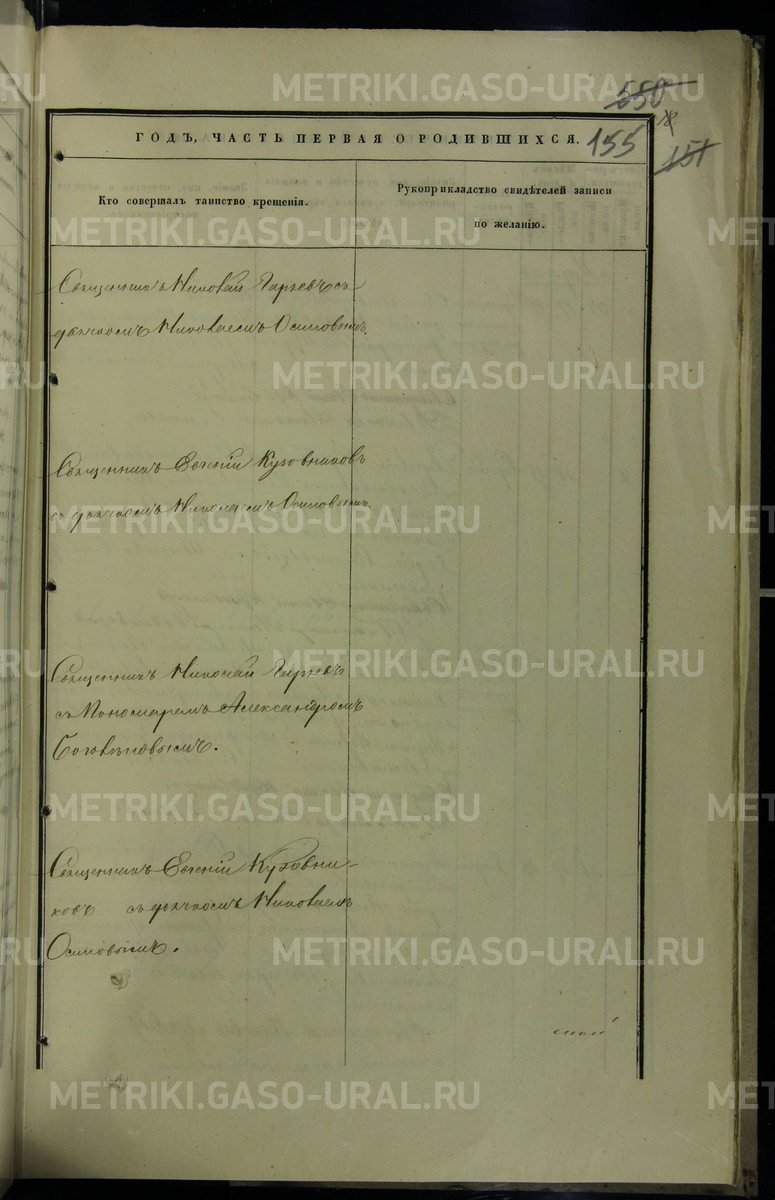 550
ГОДЪ, ЧАСТЬ ПЕРВАЯ О РОДИВШИХСЯ.
155
151
Кто совершалъ таинство крещенія.
Рукоприкладство свидѣтелей записи
по желанію.
Священникъ Николай Гаряевъ съ
дьячкомъ Николаемъ Осиповымъ.
Священникъ Евгеній Кузовниковъ
съ дьячкомъ Николаемъ Осиповымъ.
Священникъ Николай Гаряевъ
съ Пономаремъ Александромъ
Боголѣповымъ.
Священникъ Евгеній Кузовни-
ковъ съ дьячкомъ Николаемъ
Осиповымъ.
METRIKI.GASO-URAL.RU